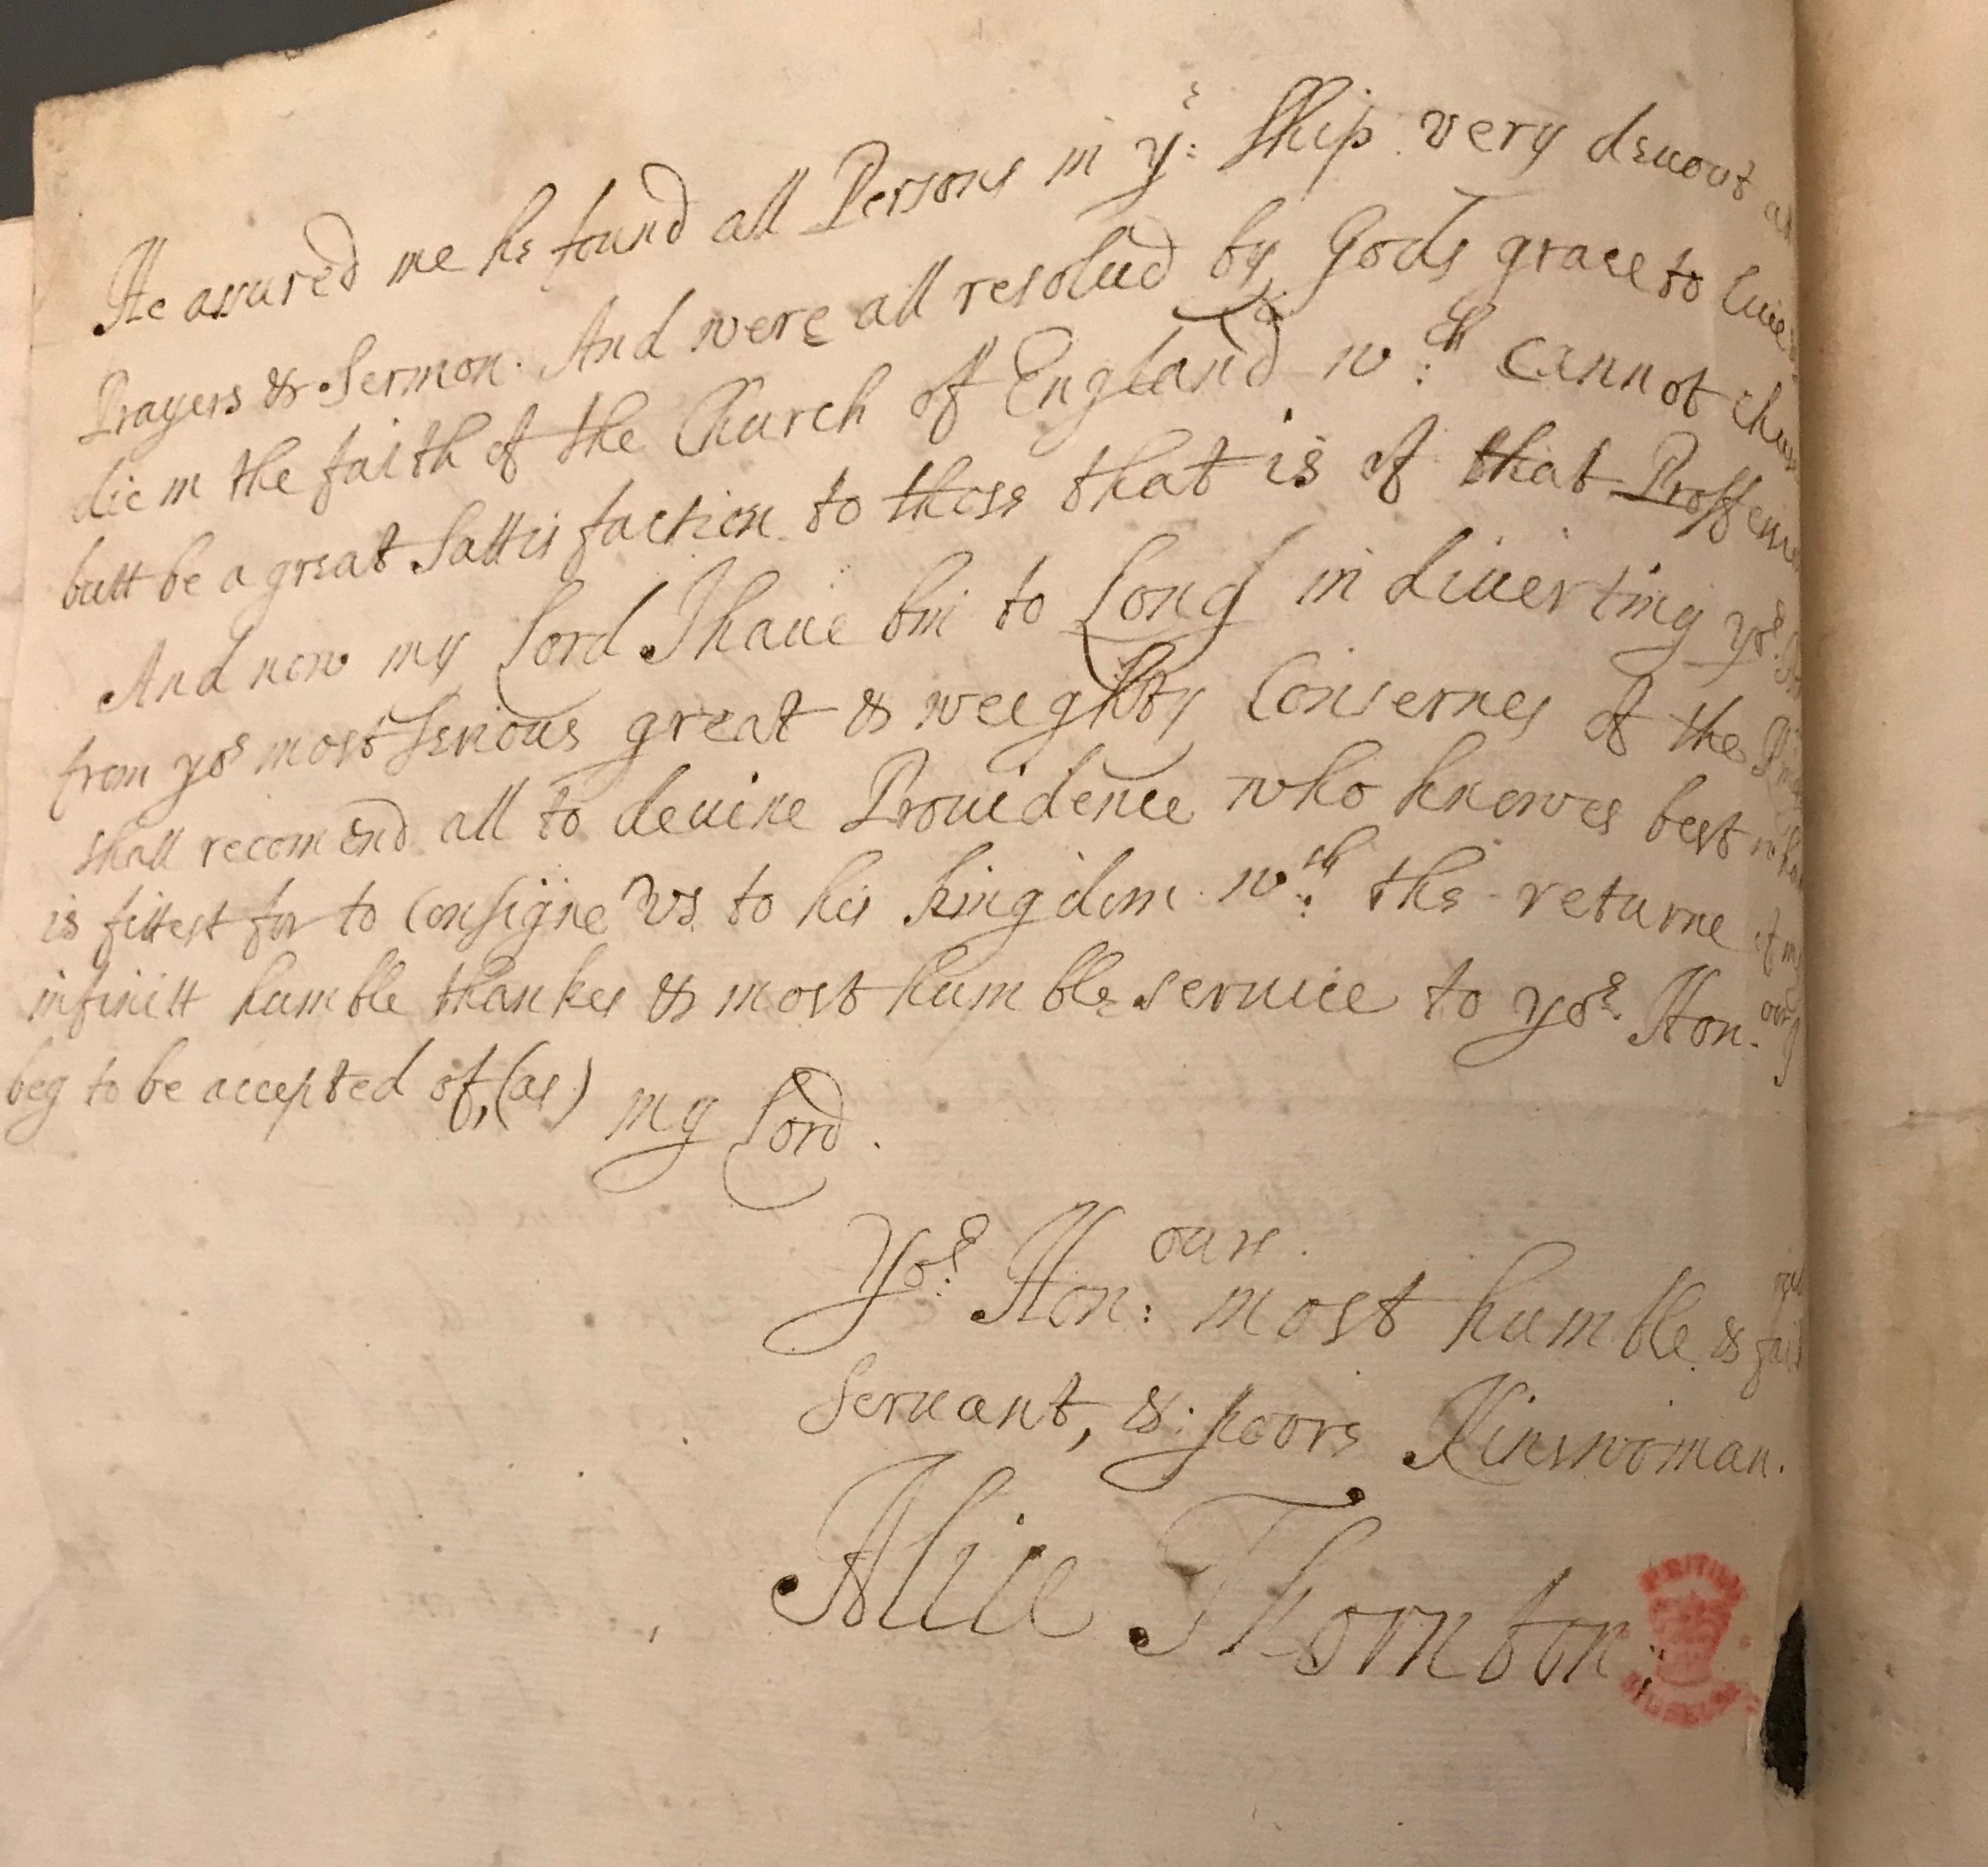 He assured me he found all Persons in ye: Ship very deuout
Prayers & Sermon. And were all resolud by Gods grace to liue
die in the faith of the Church of England wch: cannot chus
butt be a great Sattisfaction to those that is of that Proff
And now my Lord I haue bin to Long in diuerting yor:
from yor most Serious great & weighty Consernes of the
shall recomend all to deuine Prouidence who knowes best
is fittest for to Consigne Vs to his kingdom. wth: the returne of my
infinitt humble thankes & most humble seruice to yor: Hon.our I
beg to be accepted of, (as) my Lord.
Yor: Hon:ours. most humble &
Seruant, &: poore Kinswoman.
Alice Thornton:
BRITISH
MUSEUM